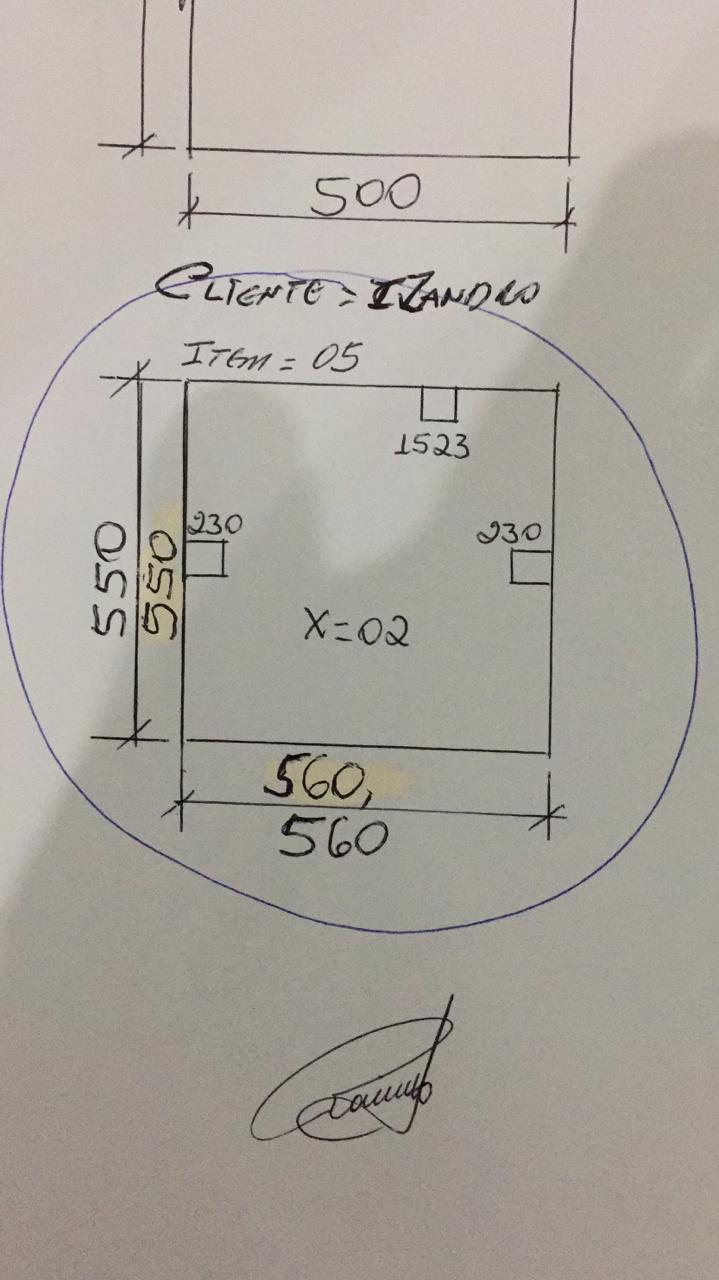 500
CLIENTE = IZANDRO
ITEM = 05
1523
230
230
550
550
X=02
560,
560